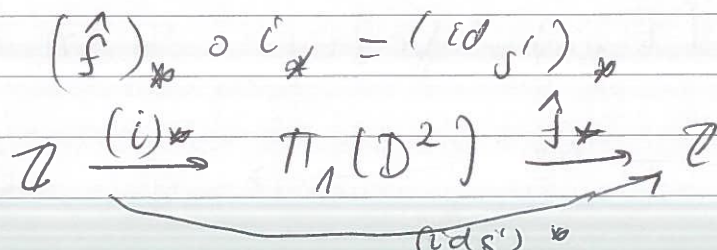 (f̂)_* ∘ i_* = (id_{S^1})_*
ℤ \xrightarrow{(i)_*} π_1(D^2) \xrightarrow{f̂_*} ℤ
(id_{S^1})_*